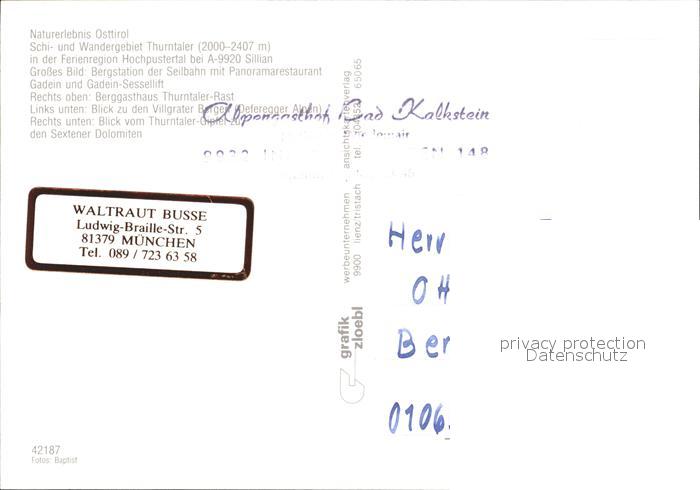 Naturerlebnis Osttirol
Schi- und Wandergebiet Thurntaler (2000–2407 m)
in der Ferienregion Hochpustertal bei A-9920 Sillian
Großes Bild: Bergstation der Seilbahn mit Panoramarestaurant
Gadein und Gadein-Sessellift
Rechts oben: Berggasthaus Thurntaler-Rast
Links unten: Blick zu den Villgrater Bergen (Deferegger Alpen)
Rechts unten: Blick vom Thurntaler-Gipfel zu
den Sextener Dolomiten
Alpengasthof Bad Kalkstein
148
WALTRAUT BUSSE
Ludwig-Braille-Str. 5
81379 MÜNCHEN
Tel. 089 / 723 63 58
werbeunternehmen - ansichtskartenverlag
9900 lienz/tristach tel. 65065
grafik
zloebl
Herr
OH
Ber
0106.
privacy protection
Datenschutz
42187
Fotos: Baptist